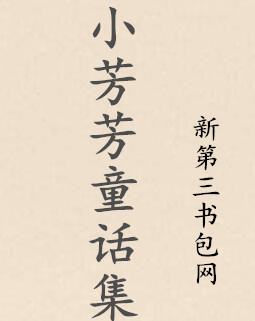 小芳芳童话集
新第三书包网